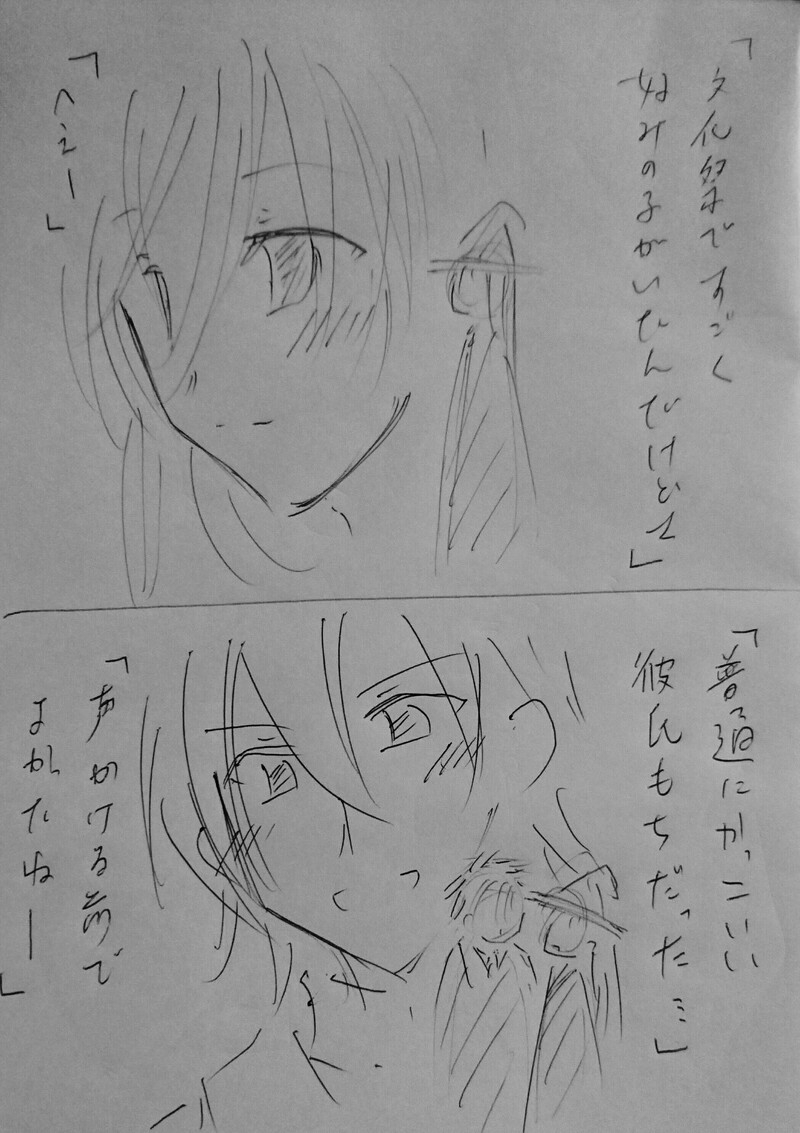 「文化祭ですごく
好みの子がいたんだけどさ」
「へえー」
「普通にかっこいい
彼氏もちだった…」
「声かける前で
よかたねー」